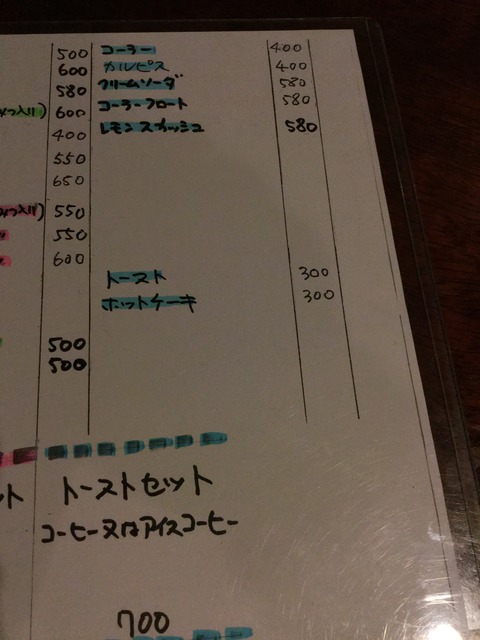 500 コーラー 400
600 カルピス 400
580 クリームソーダ 580
みつ入り) 600 コーラーフロート 580
400 レモンスカッシュ 580
550
650
みつ入り) 550
550
600
トースト 300
ホットケーキ 300
500
500
ット トーストセット
コーヒー又はアイスコーヒー
700